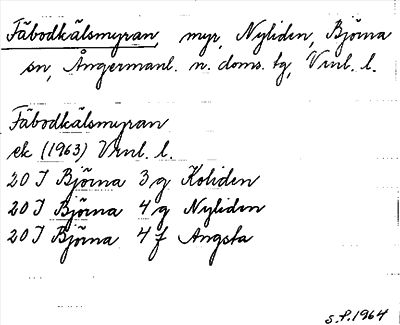 Fäbodkälsmyran, myr, Nyliden, Björna
sn, Ångermanl. n. doms. tg, Vrnl. l.
Fäbodkälsmyran
ek (1963) Vrnl. l.
20 J Björna 3 g Koliden
20 J Björna 4 g Nyliden
20 J Björna 4 f Angsta
S.P. 1964